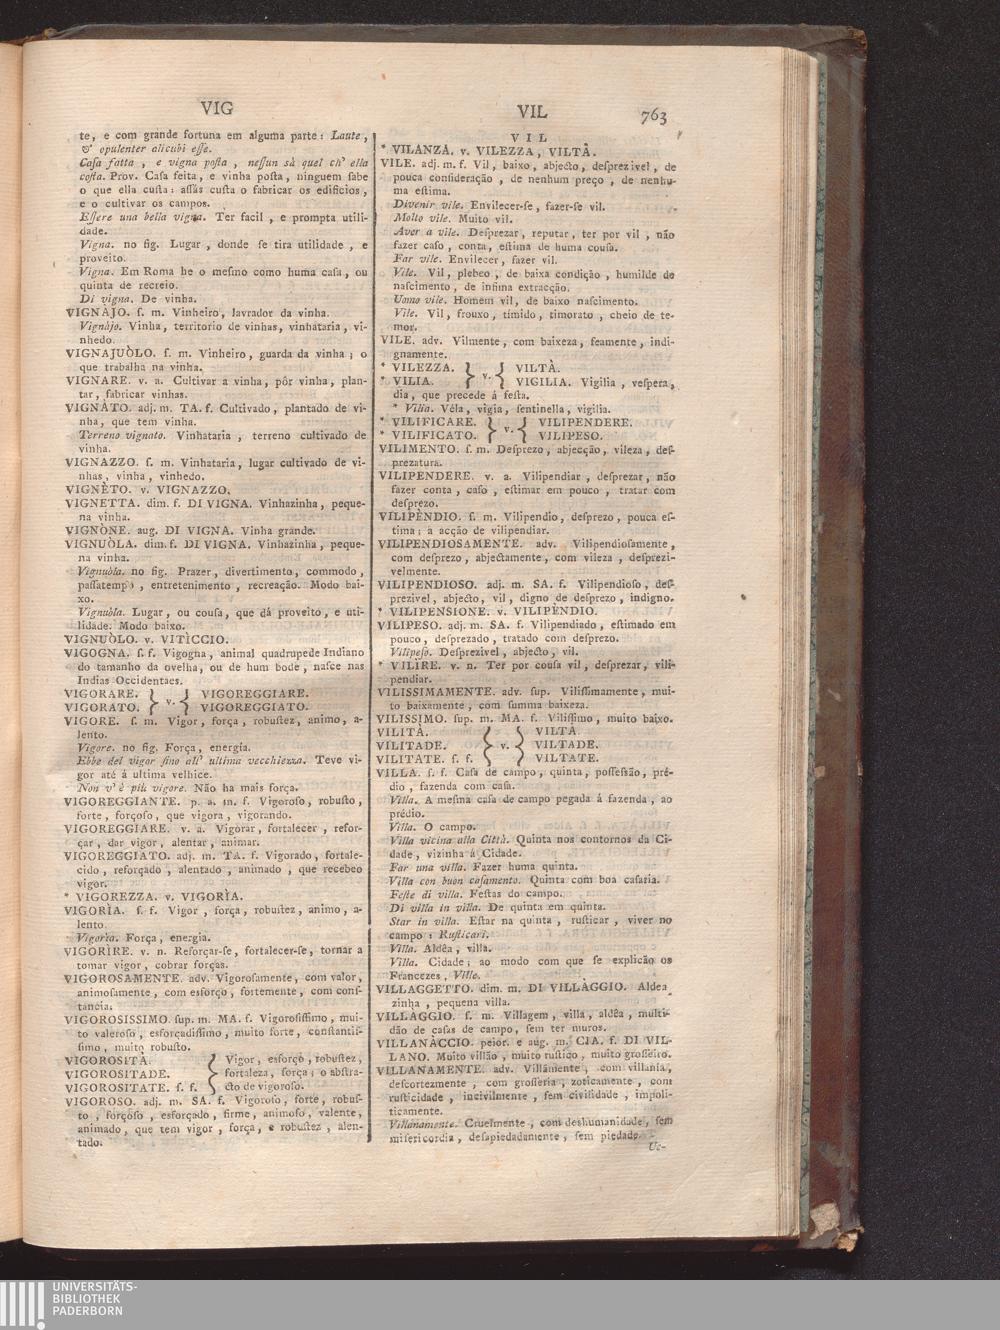 VIG
te, e com grande fortuna em alguma parte: Laute,
& opulenter alicubi eſſe.
Caſa fatta, e vigna poſta, neſſun sà quel ch' ella
coſta. Prov. Caſa feita, e vinha poſta, ninguem ſabe
o que ella cuſta: aſſás cuſta o fabricar os edificios,
e o cultivar os campos.
Eſſere una bella vigna. Ter facil, e prompta utili-
dade.
Vigna. no fig. Lugar, donde ſe tira utilidade, e
proveito.
Vigna. Em Roma he o meſmo como huma caſa, ou
quinta de recreio.
Di vigna. De vinha.
VIGNÀJO. ſ. m. Vinheiro, lavrador da vinha.
Vignàjo. Vinha, territorio de vinhas, vinhataria, vi-
nhedo.
VIGNAJUÒLO. ſ. m. Vinheiro, guarda da vinha; o
que trabalha na vinha.
VIGNARE. v. a. Cultivar a vinha, pôr vinha, plan-
tar, fabricar vinhas.
VIGNÀTO. adj. m. TA. f. Cultivado, plantado de vi-
nha, que tem vinha.
Terreno vignato. Vinhataria, terreno cultivado de
vinha.
VIGNAZZO. ſ. m. Vinhataria, lugar cultivado de vi-
nhas, vinha, vinhedo.
VIGNÈTO. v. VIGNAZZO.
VIGNETTA. dim. f. DI VIGNA. Vinhazinha, peque-
na vinha.
VIGNÒNE. aug. DI VIGNA. Vinha grande.
VIGNUÒLA. dim. f. DI VIGNA. Vinhazinha, peque-
na vinha.
Vignuòla. no fig. Prazer, divertimento, commodo,
paſſatempo, entretenimento, recreação. Modo bai-
xo.
Vignuòla. Lugar, ou couſa, que dá proveito, e uti-
lidade. Modo baixo.
VIGNUÒLO. v. VITÌCCIO.
VIGOGNA. ſ. f. Vigogna, animal quadrupede Indiano
do tamanho da ovelha, ou de hum bode, naſce nas
Indias Occidentaes.
VIGORARE. } v. { VIGOREGGIARE.
VIGORATO. } { VIGOREGGIATO.
VIGORE. ſ. m. Vigor, força, robuſtez, animo, a-
lento.
Vigore. no fig. Força, energia.
Ebbe del vigor fino all' ultima vecchiezza. Teve vi-
gor até á ultima velhice.
Non v' è più vigore. Não ha mais força.
VIGOREGGIANTE. p. a. m. f. Vigoroſo, robuſto,
forte, forçoſo, que vigora, vigorando.
VIGOREGGIARE. v. a. Vigorar, fortalecer, refor-
çar, dar vigor, alentar, animar.
VIGOREGGIATO. adj. m. TA. f. Vigorado, fortale-
cido, reforçado, alentado, animado, que recebeo
vigor.
* VIGOREZZA. v. VIGORÌA.
VIGORÌA. ſ. f. Vigor, força, robuſtez, animo, a-
lento.
Vigorìa. Força, energia.
VIGORÌRE. v. n. Reforçar-ſe, fortalecer-ſe, tornar a
tomar vigor, cobrar forças.
VIGOROSAMENTE. adv. Vigoroſamente, com valor,
animoſamente, com esforço, fortemente, com conſ-
tancia.
VIGOROSISSIMO. ſup. m. MA. f. Vigoroſiſſimo, mui-
to valeroſo, esforçadiſſimo, muito forte, conſtantiſ-
ſimo, muito robuſto.
VIGOROSITÀ. } Vigor, esforço, robuſtez,
VIGOROSITADE. } fortaleza, força; o abſtra-
VIGOROSITATE. ſ. f. } cto de vigoroſo.
VIGOROSO. adj. m. SA. f. Vigoroſo, forte, robuſ-
to, forçoſo, esforçado, firme, animoſo, valente,
animado, que tem vigor, força, e robuſtez, alen-
tado.
VIL 763
VIL
* VILÀNZA. v. VILEZZA, VILTÀ.
VILE. adj. m. f. Vil, baixo, abjecto, deſprezivel, de
pouca conſideração, de nenhum preço, de nenhu-
ma eſtima.
Divenir vile. Envilecer-ſe, fazer-ſe vil.
Molto vile. Muito vil.
Aver a vile. Deſprezar, reputar, ter por vil, não
fazer caſo, conta, eſtima de huma couſa.
Far vile. Envilecer, fazer vil.
Vile. Vil, plebeo, de baixa condição, humilde de
naſcimento, de infima extracção.
Uomo vile. Homem vil, de baixo naſcimento.
Vile. Vil, frouxo, timido, timorato, cheio de te-
mor.
VILE. adv. Vilmente, com baixeza, feamente, indi-
gnamente.
* VILEZZA. } v. { VILTÀ.
* VILIA. } { VIGILIA. Vigilia, veſpera,
dia, que precede á feſta.
* Vilia. Véla, vigia, ſentinella, vigilia.
* VILIFICARE. } v. { VILIPENDERE.
* VILIFICATO. } { VILIPESO.
VILIMENTO. ſ. m. Deſprezo, abjecção, vileza, deſ-
prezatura.
VILIPENDERE. v. a. Vilipendiar, deſprezar, não
fazer conta, caſo, eſtimar em pouco, tratar com
deſprezo.
VILIPÈNDIO. ſ. m. Vilipendio, deſprezo, pouca eſ-
tima; a acção de vilipendiar.
VILIPENDIOSAMENTE. adv. Vilipendioſamente,
com deſprezo, abjectamente, com vileza, deſprezi-
velmente.
VILIPENDIOSO. adj. m. SA. f. Vilipendioſo, deſ-
prezivel, abjecto, vil, digno de deſprezo, indigno.
* VILIPENSIONE. v. VILIPÈNDIO.
VILIPESO. adj. m. SA. f. Vilipendiado, eſtimado em
pouco, deſprezado, tratado com deſprezo.
Vilipeſo. Deſprezivel, abjecto, vil.
* VILIRE. v. n. Ter por couſa vil, deſprezar, vili-
pendiar.
VILISSIMAMENTE. adv. ſup. Viliſſimamente, mui-
to baixamente, com ſumma baixeza.
VILISSIMO. ſup. m. MA. f. Viliſſimo, muito baixo.
VILITÀ. } { VILTÀ.
VILITADE. } v. { VILTADE.
VILITATE. ſ. f. } { VILTATE.
VILLA. ſ. f. Caſa de campo, quinta, poſſeſsão, pré-
dio, fazenda com caſa.
Villa. A meſma caſa de campo pegada á fazenda, ao
prédio.
Villa. O campo.
Villa vicina alla Città. Quinta nos contornos da Ci-
dade, vizinha á Cidade.
Far una villa. Fazer huma quinta.
Villa con buon caſamento. Quinta com boa caſaria.
Feſte di villa. Feſtas do campo.
Di villa in villa. De quinta em quinta.
Star in villa. Eſtar na quinta, ruſticar, viver no
campo: Ruſticari.
Villa. Aldêa, villa.
Villa. Cidade; ao modo com que ſe explicão os
Francezes, Ville.
VILLAGGETTO. dim. m. DI VILLÀGGIO. Aldea-
zinha, pequena villa.
VILLÀGGIO. ſ. m. Villagem, villa, aldêa, multi-
dão de caſas de campo, ſem ter muros.
VILLANÀCCIO. peior. e aug. m. CIA. f. DI VIL-
LANO. Muito villão, muito ruſtico, muito groſſeiro.
VILLANAMENTE. adv. Villãmente, com villania,
deſcortezmente, com groſſeria, zoticamente, com
ruſticidade, incivilmente, ſem civilidade, impoli-
ticamente.
Villanamente. Cruelmente, com deshumanidade, ſem
miſericordia, deſapiedadamente, ſem piedade.
UNIVERSITÄTS-
BIBLIOTHEK
PADERBORN